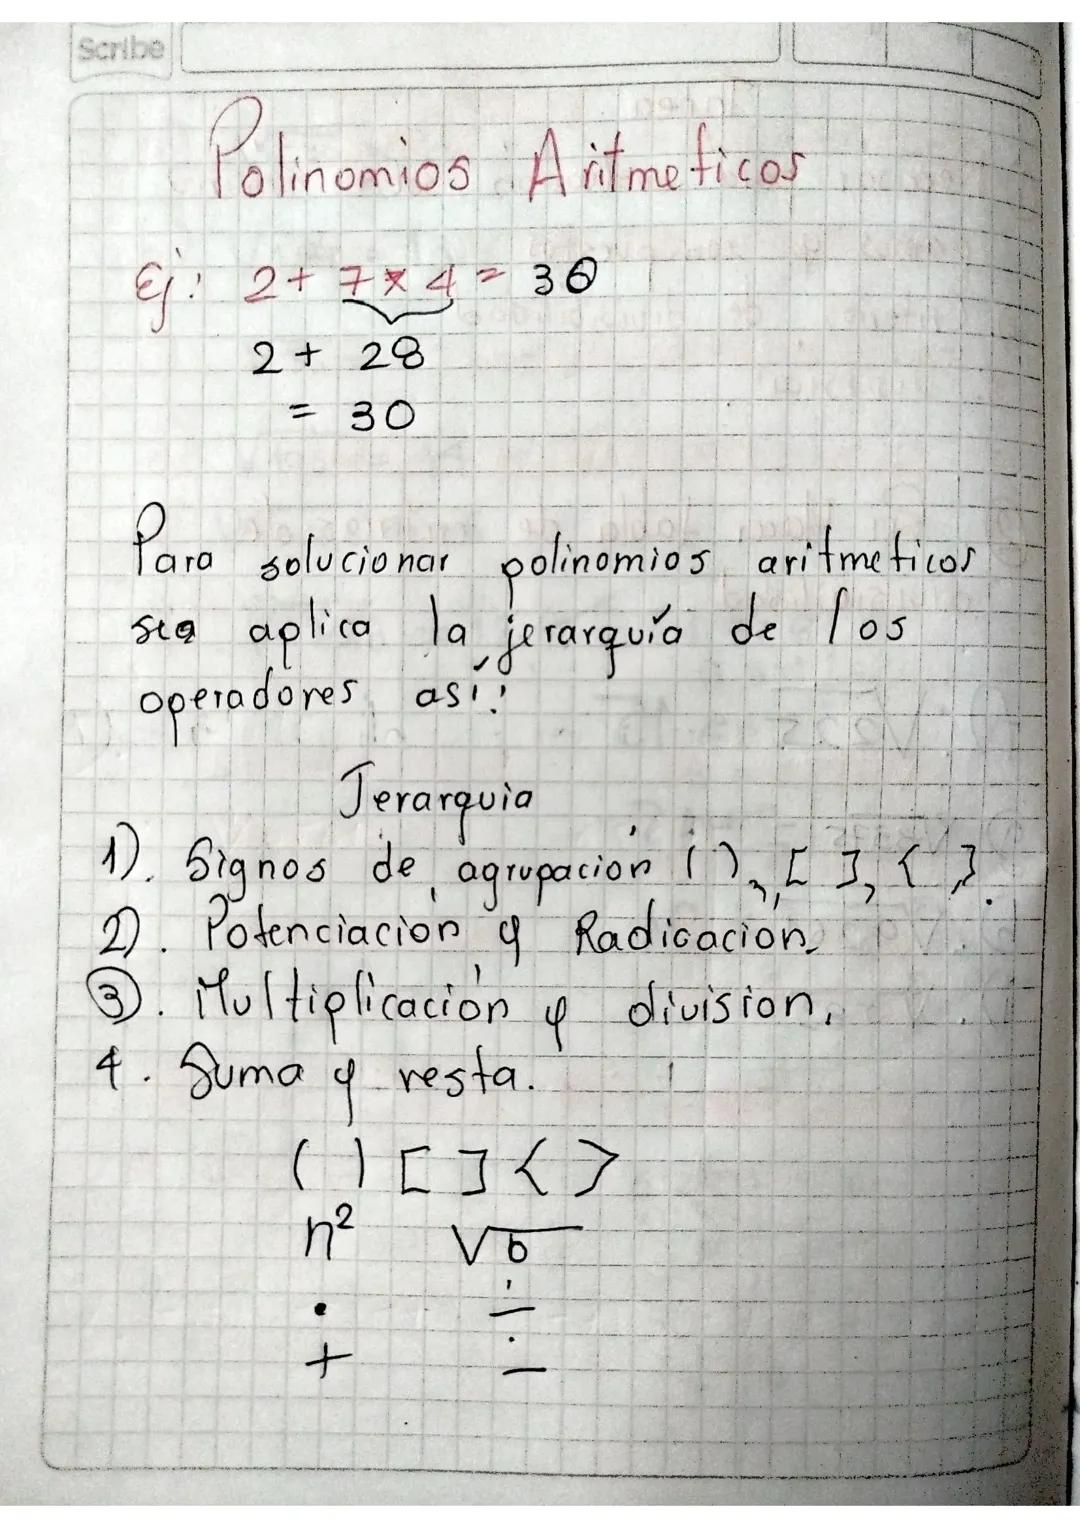 Scribe
Polinomios Aritmeticos
Ej: 2 + 7 * 4 = 30
2 + 28
= 30
Para solucionar polinomios aritmeticos
se aplica la jerarquía de los
operadores así:
Jerarquia
1). Signos de agrupación ( ), [ ], { }.
2). Potenciación y Radicación.
3). Multiplicación y division.
4. Suma y resta.
( ) [ ] < >
n² √b
• ÷
+ −